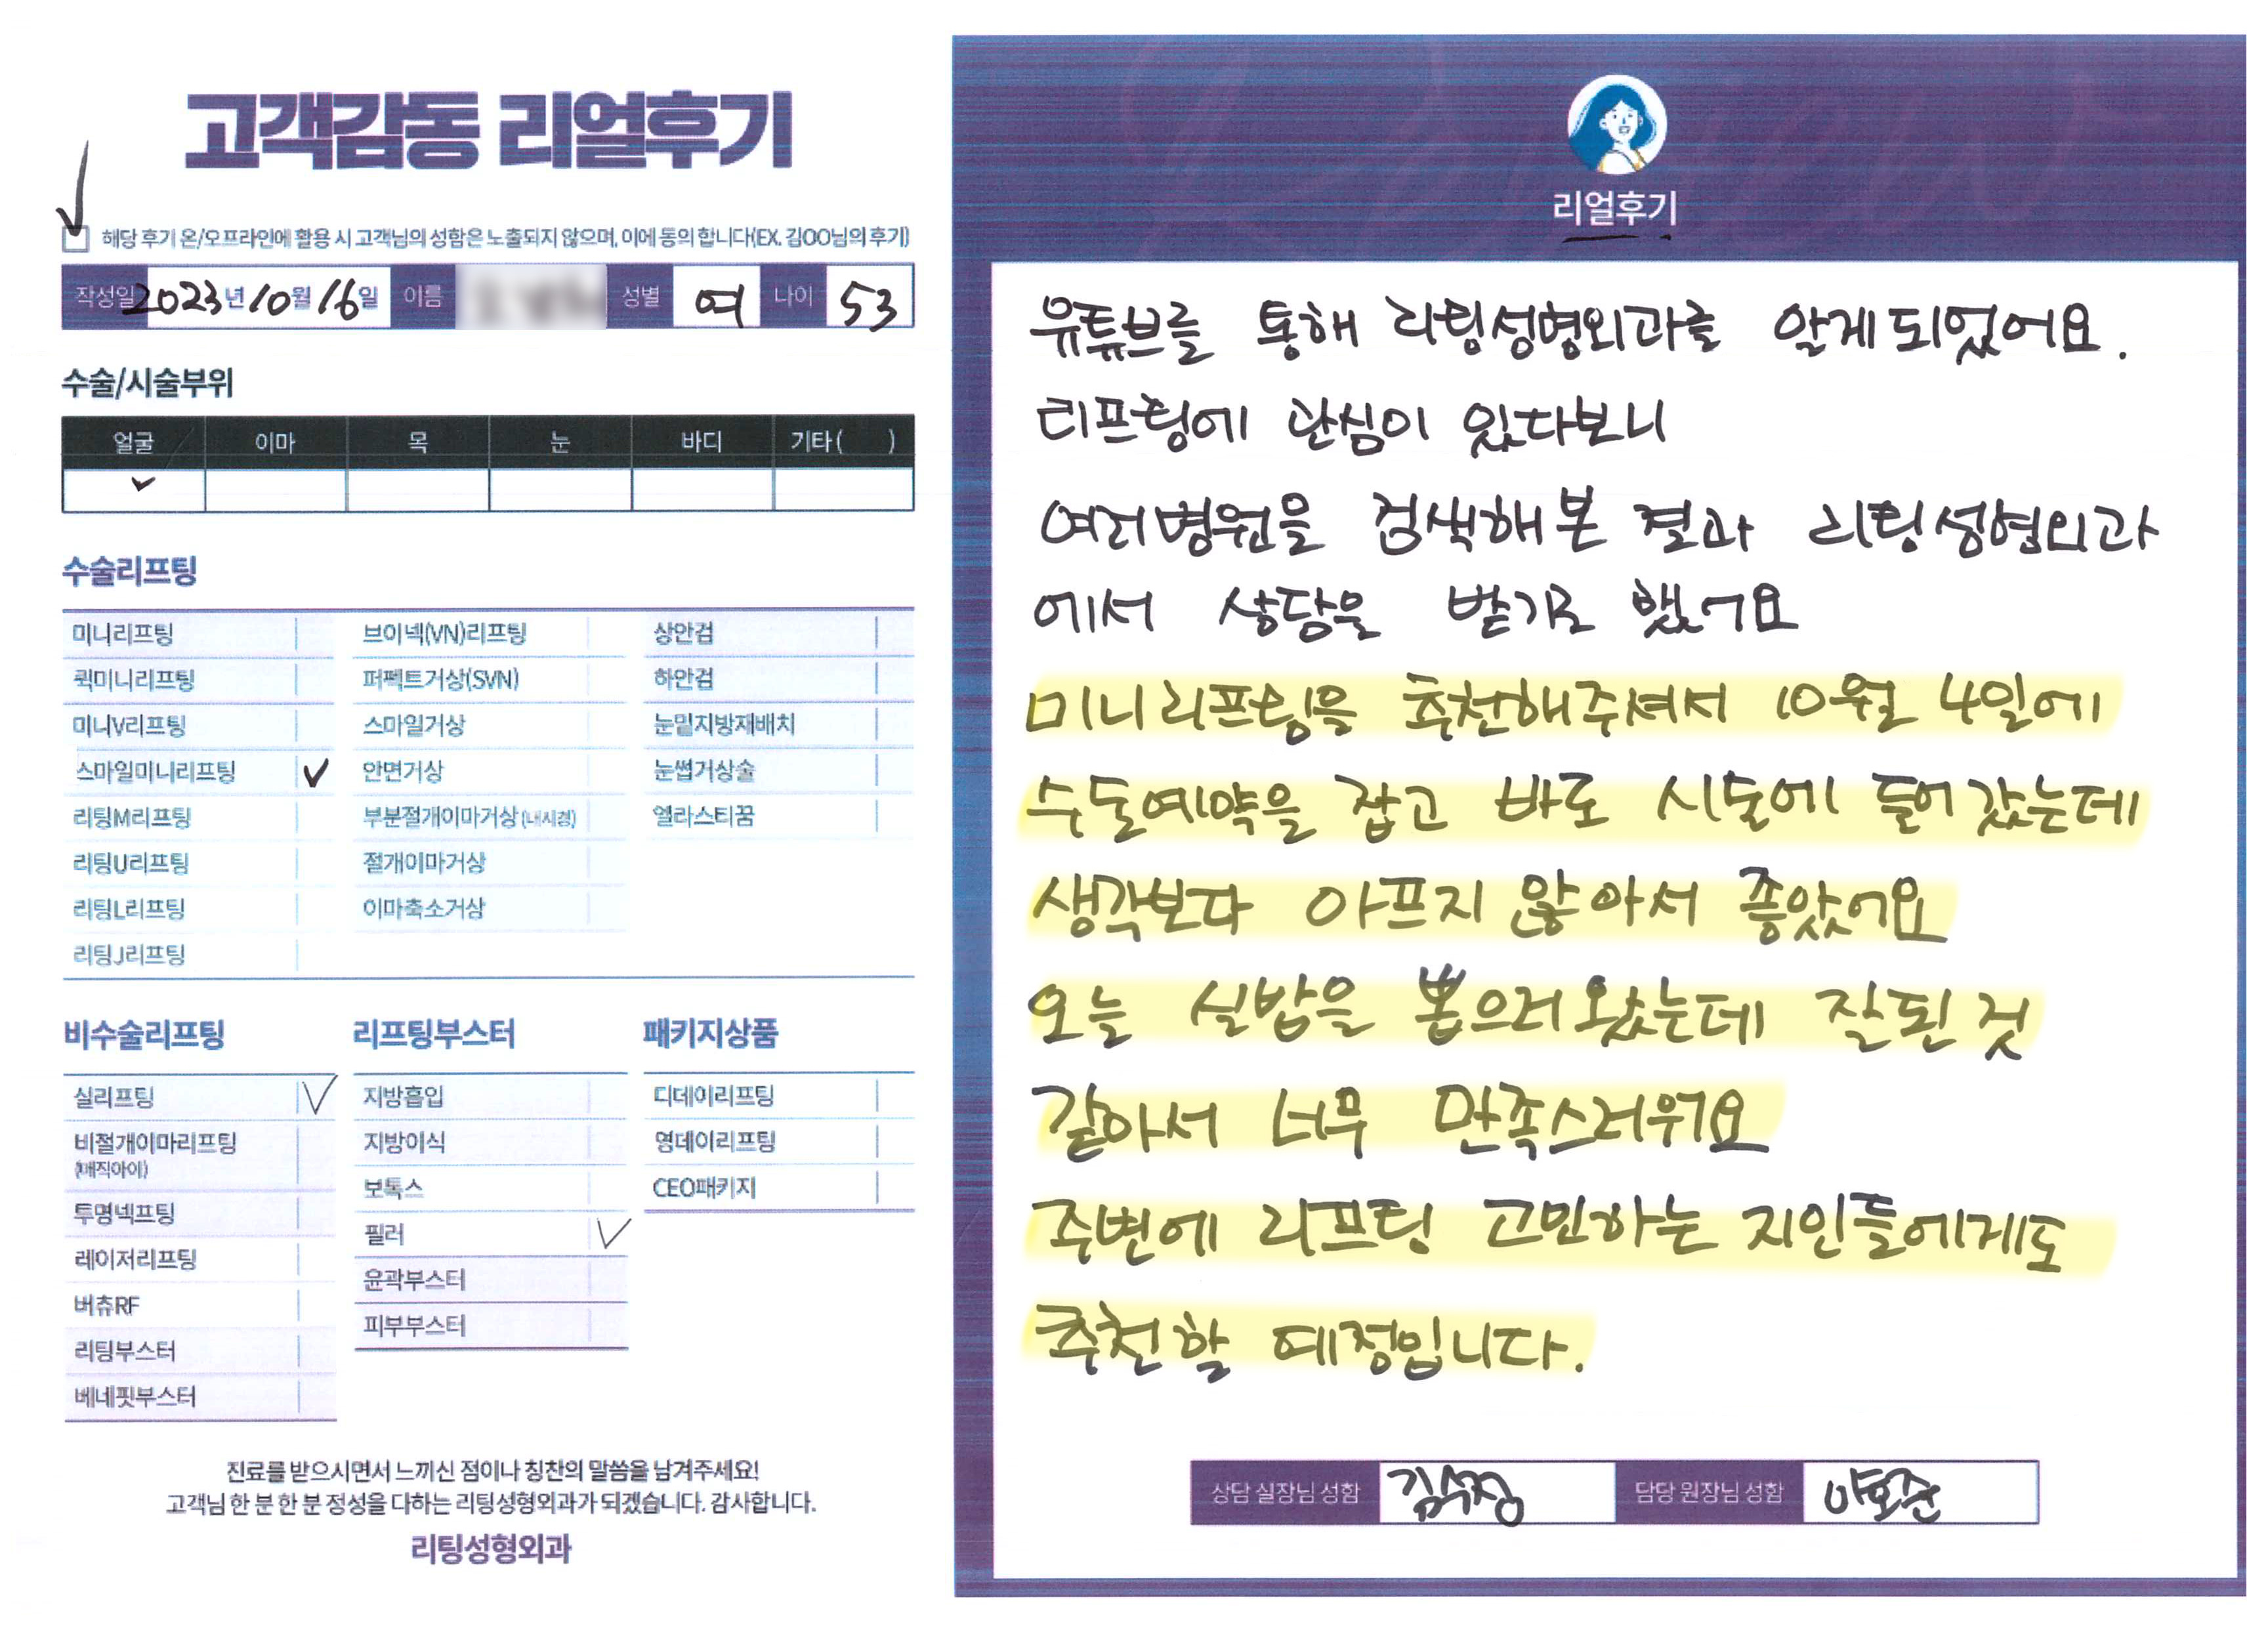 고객감동 리얼후기
해당 후기 온/오프라인에 활용 시 고객님의 성함은 노출되지 않으며, 이에 동의 합니다(EX. 김OO님의 후기)
작성일 2023년 10월 16일 이름 성별 여 나이 53
수술/시술부위
얼굴 이마 목 눈 바디 기타( )
수술리프팅
미니리프팅 브이넥(VN)리프팅 상안검
퀵미니리프팅 퍼펙트거상(SVN) 하안검
미니V리프팅 스마일거상 눈밑지방재배치
스마일미니리프팅 안면거상 눈썹거상술
리팅M리프팅 부분절개이마거상(내시경) 엘라스티꿈
리팅U리프팅 절개이마거상
리팅L리프팅 이마축소거상
리팅J리프팅
비수술리프팅 리프팅부스터 패키지상품
실리프팅 지방흡입 디데이리프팅
비절개이마리프팅 지방이식 영데이리프팅
(매직아이)
보톡스 CEO패키지
투명넥프팅 필러
레이저리프팅 윤곽부스터
버츄RF 피부부스터
리팅부스터
베네핏부스터
진료를 받으시면서 느끼신 점이나 칭찬의 말씀을 남겨주세요!
고객님 한 분 한 분 정성을 다하는 리팅성형외과가 되겠습니다. 감사합니다.
리팅성형외과
리얼후기
유튜브를 통해 리팅성형외과를 알게되었어요.
리프팅에 관심이 있다보니
여러병원을 검색해본 결과 리팅성형외과
에서 상담을 받기로 했어요
미니리프팅을 추천해주셔서 10월 4일에
수술예약을 잡고 바로 시술에 들어갔는데
생각보다 아프지 않아서 좋았어요
오늘 실밥을 뽑으러왔는데 잘된 것
같아서 너무 만족스러워요
주변에 리프팅 고민하는 지인들에게도
추천할 예정입니다.
상담 실장님 성함 김수정 담당 원장님 성함